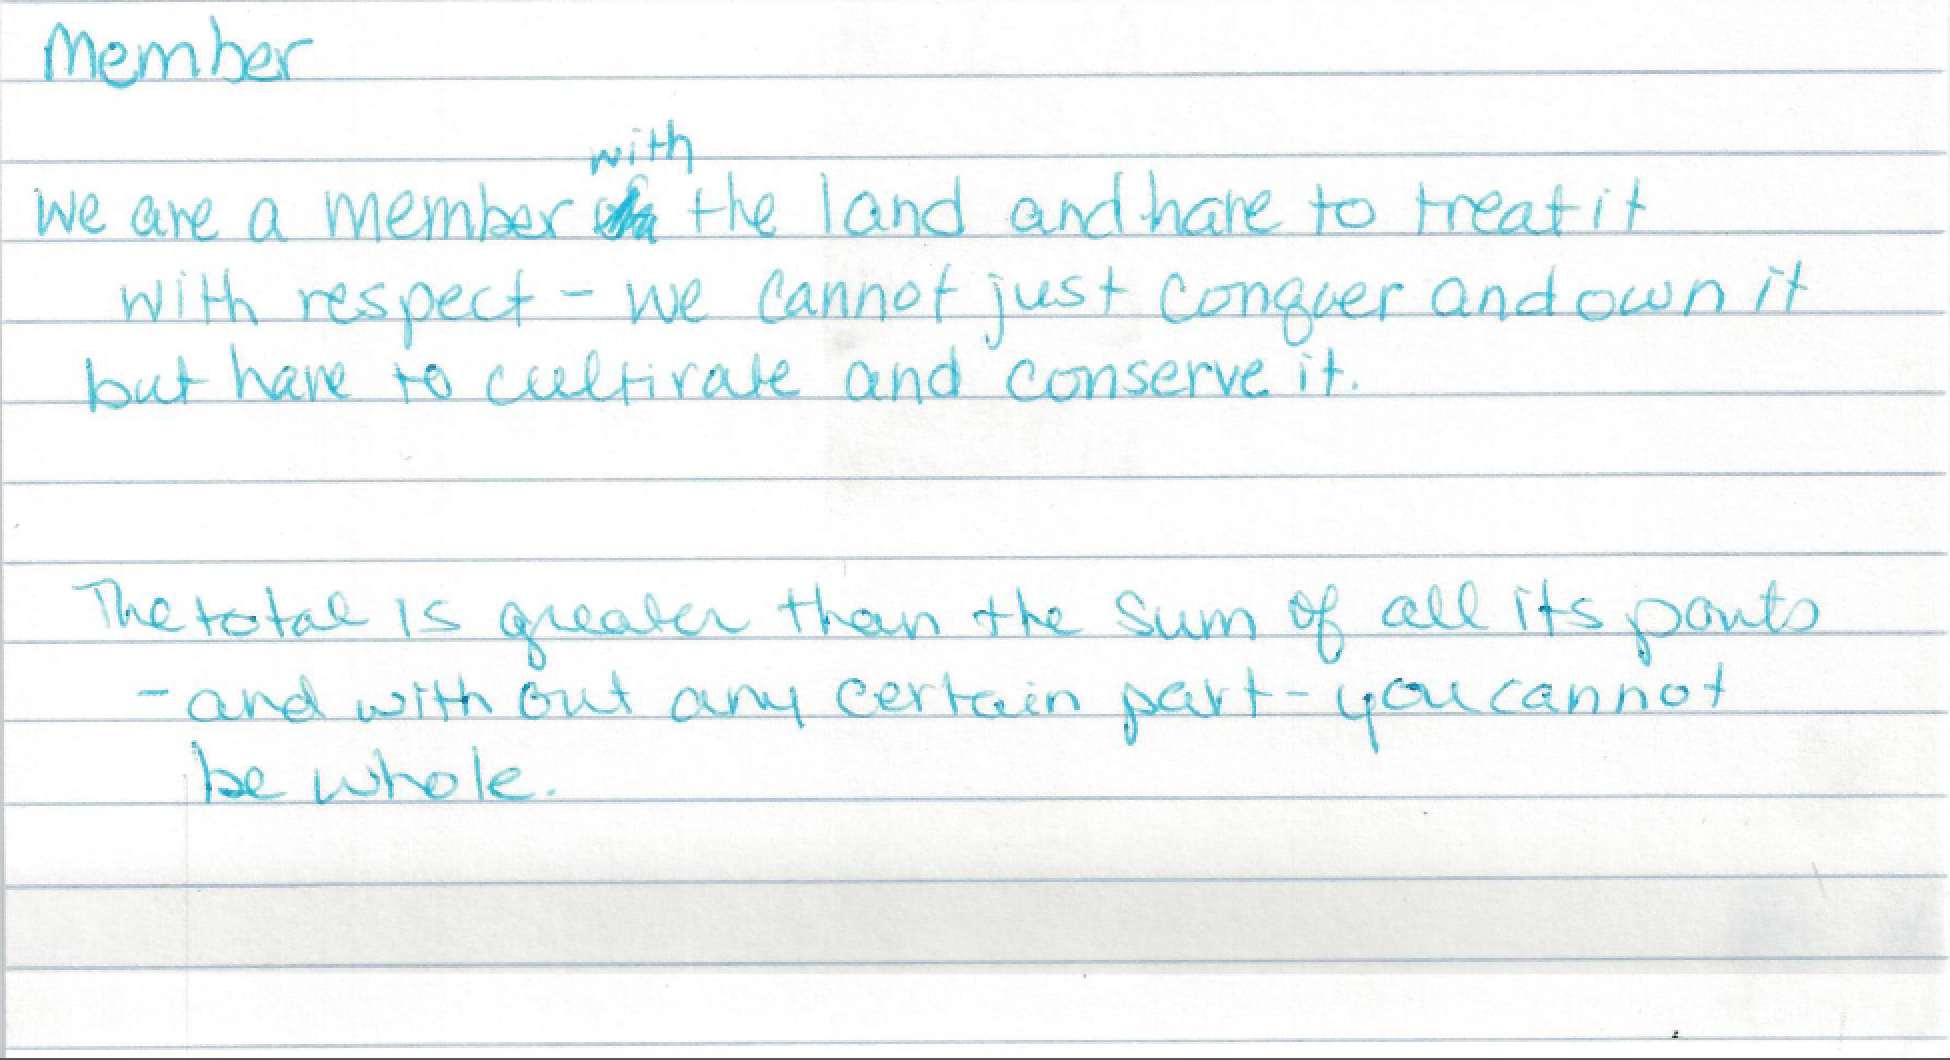 Member
with
we are a member the land and have to treat it
with respect - we cannot just conquer and own it
but have to cultivate and conserve it.
The total is greater than the sum of all its parts
- and with out any certain part - you cannot
be whole.